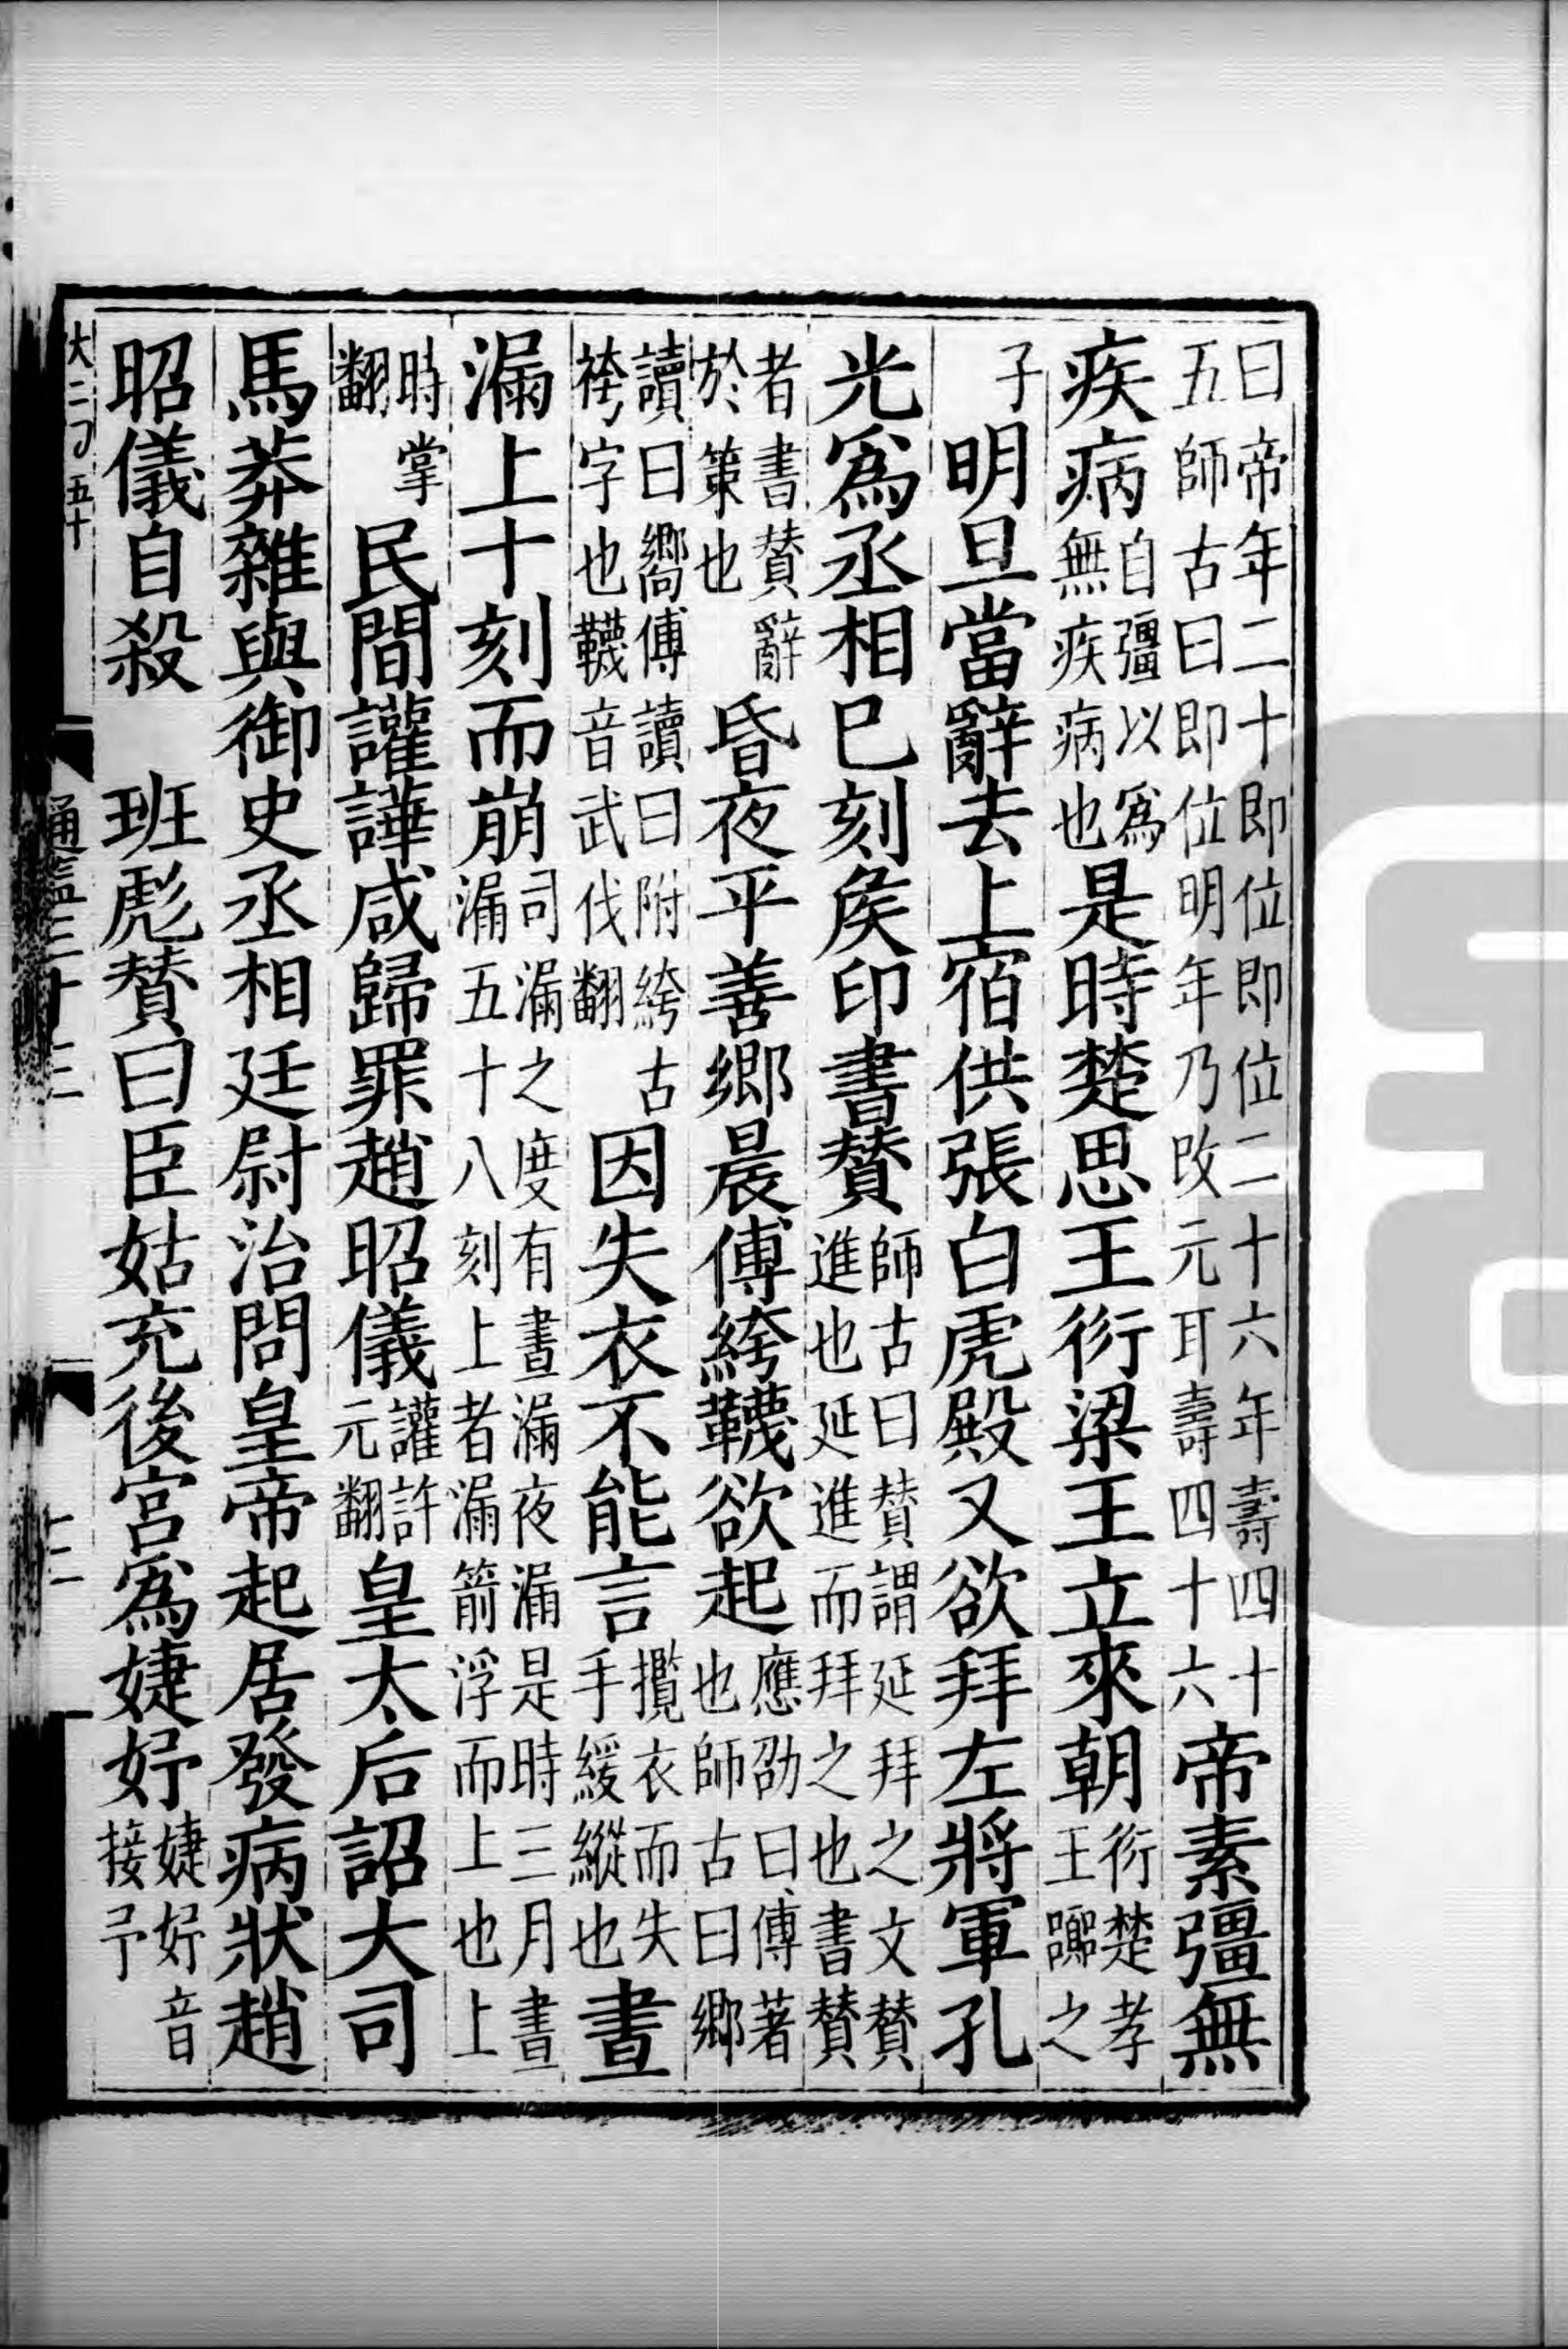 曰帝年二十即位即位二十六年壽四十
五師古曰即位明年乃改元耳壽四十六
帝素彊無
疾病
自彊以爲
無疾病也
是時楚思王衍梁王立來朝
衍楚孝
王囂之
子
明旦當辭去上宿供張白虎殿又欲拜左將軍孔
光爲丞相已刻矦印書贊
師古曰贊謂延拜之文贊
進也延進而拜之也書贊
者書贊辭
於策也
昏夜平善鄉晨傅絝韈欲起
應劭曰傅著
也師古曰鄉
讀曰嚮傅讀曰附絝古
袴字也韈音武伐翻
因失衣不能言
攬衣而失
手緩縱也
晝
漏上十刻而崩
司漏之度有晝漏夜漏是時三月晝
漏五十八刻上者漏箭浮而上也上
時掌
翻
民間讙譁咸歸罪趙昭儀
讙許
元翻
皇太后詔大司
馬莽雜與御史丞相廷尉治問皇帝起居發病狀趙
昭儀自殺　班彪贊曰臣姑充後宮爲婕妤
婕妤音
接予
通鑑三十三